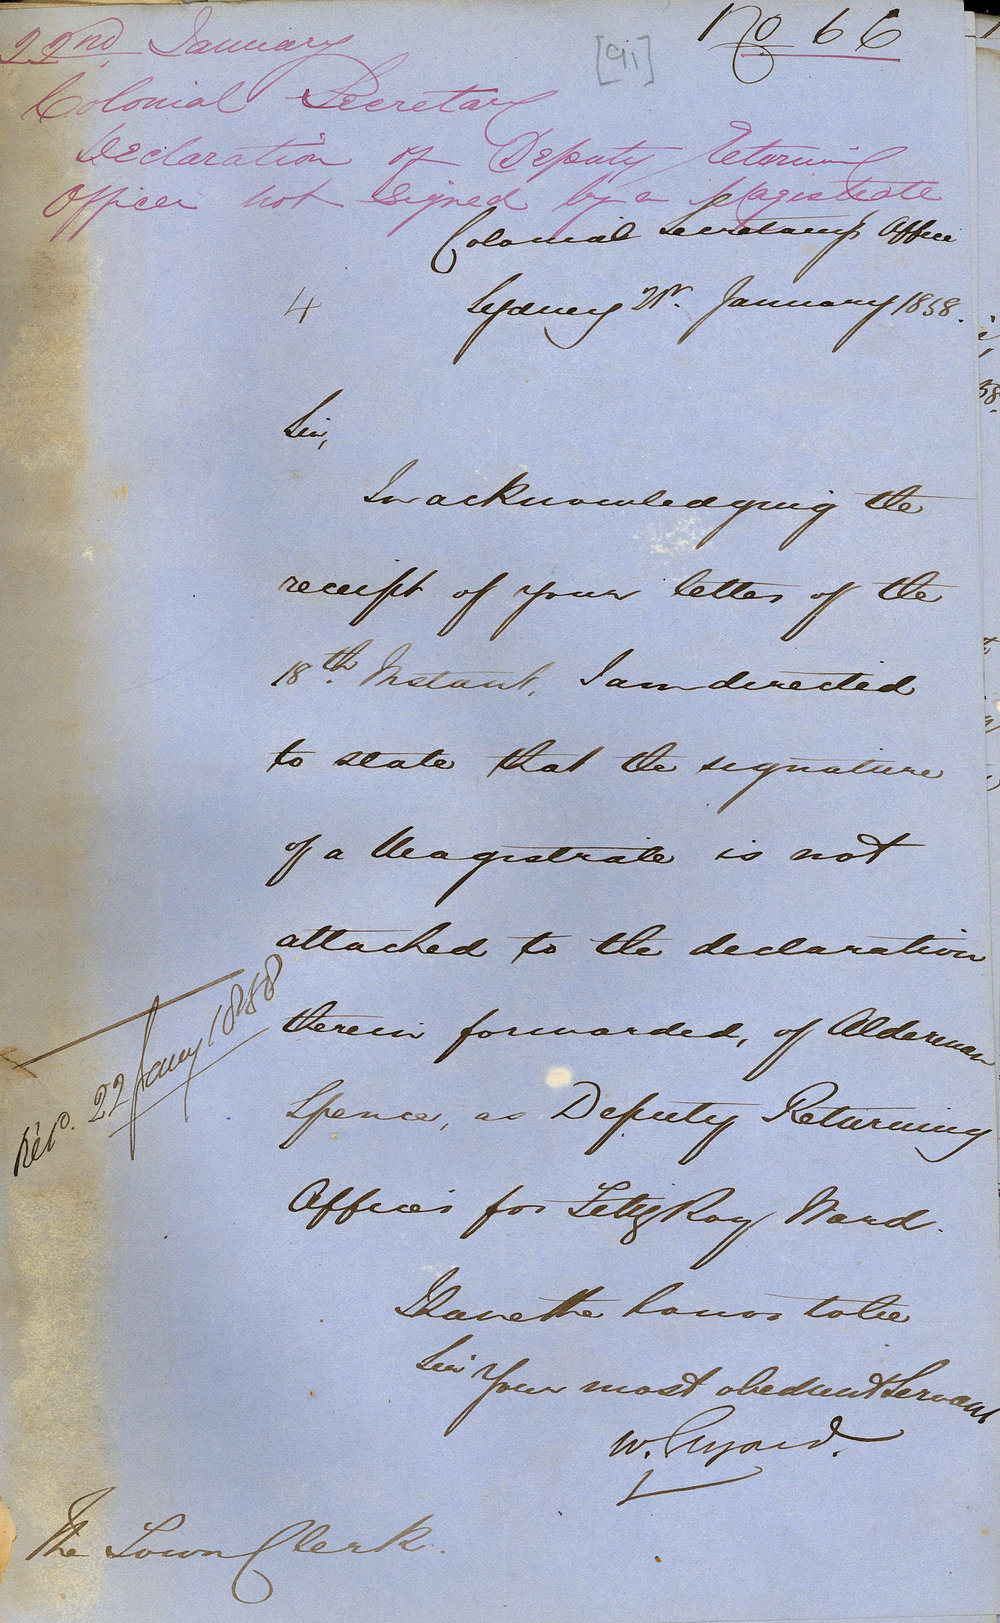 No 66
[91]
22nd January
Colonial Secretary
Declaration of Deputy Returning
Officer not signed by a Magistrate
Colonial Secretary's Office
4
Sydney 21st. January 1858.
Sir,
In acknowledging the
receipt of your letter of the
18th. Instant, I am directed
to state that the signature
of a Magistrate is not
attached to the declaration
therein forwarded, of Alderman
Spence, as Deputy Returning
Officer for FitzRoy Ward.
I have the honor to be
Sir Your most obedient Servant
W. Elyard.
Recd. 22 Jany 1858
The Town Clerk.